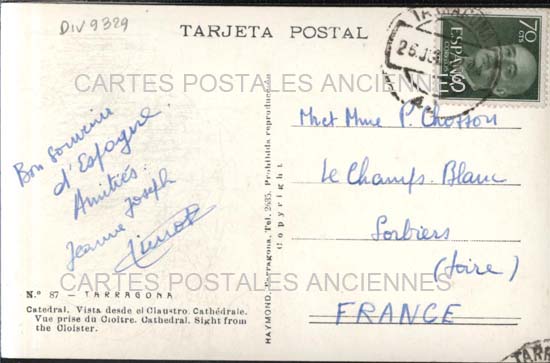 DIV 9329
TARJETA POSTAL
70
CTS
ESPAÑA
CORREOS
CARTES POSTALES ANCIENNES
Bon souvenir
d'Espagne.
Amitiés
Jeanne Joseph
Mr et Mme P. Chosson
Le Champs. Blanc
Sorbiers
(Loire)
FRANCE
HAYMOND. Tarragona. Tel. 2835. Prohibida reproducción
Copyright
CARTES POSTALES ANCIENNES
N.º 87 - TARRAGONA
Catedral. Vista desde el Claustro. Cathédrale.
Vue prise du Cloître. Cathedral. Sight from
the Cloister.